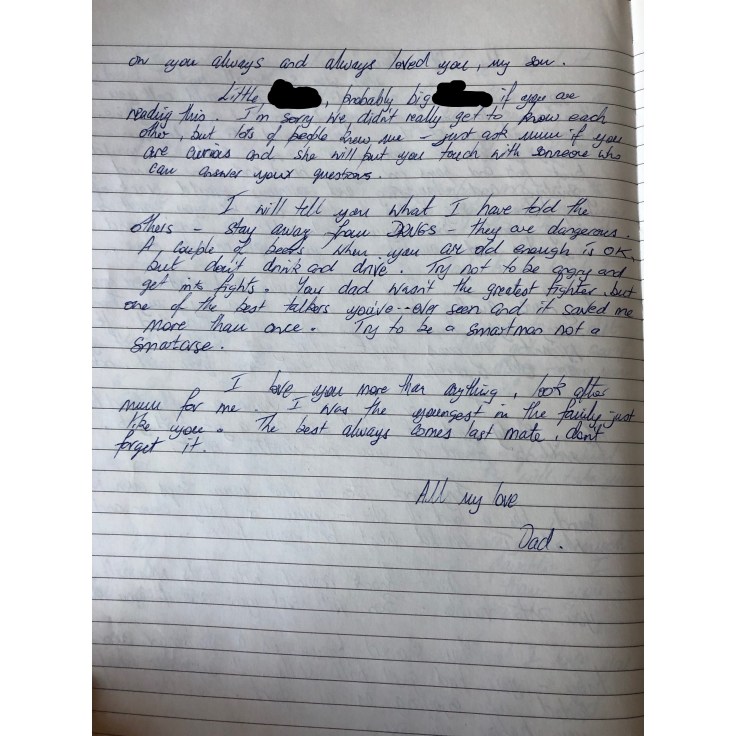 on you always and always loved you, my son.
Little , probably big if you are
reading this. I'm sorry we didn't really get to know each
other, but lots of people knew me - just ask mum if you
are curious and she will put you touch with someone who
can answer your questions.
I will tell you what I have told the
others - stay away from DRUGS - they are dangerous.
A couple of beers when you are old enough is OK,
but don't drink and drive. Try not to be angry and
get into fights. Your dad wasn't the greatest fighter, but
one of the best talkers you've ever seen and it saved me
more than once. Try to be a smartman not a
smartarse.
I love you more than anything, look after
mum for me. I was the youngest in the family just
like you. The best always comes last mate, don't
forget it.
All my love
Dad.